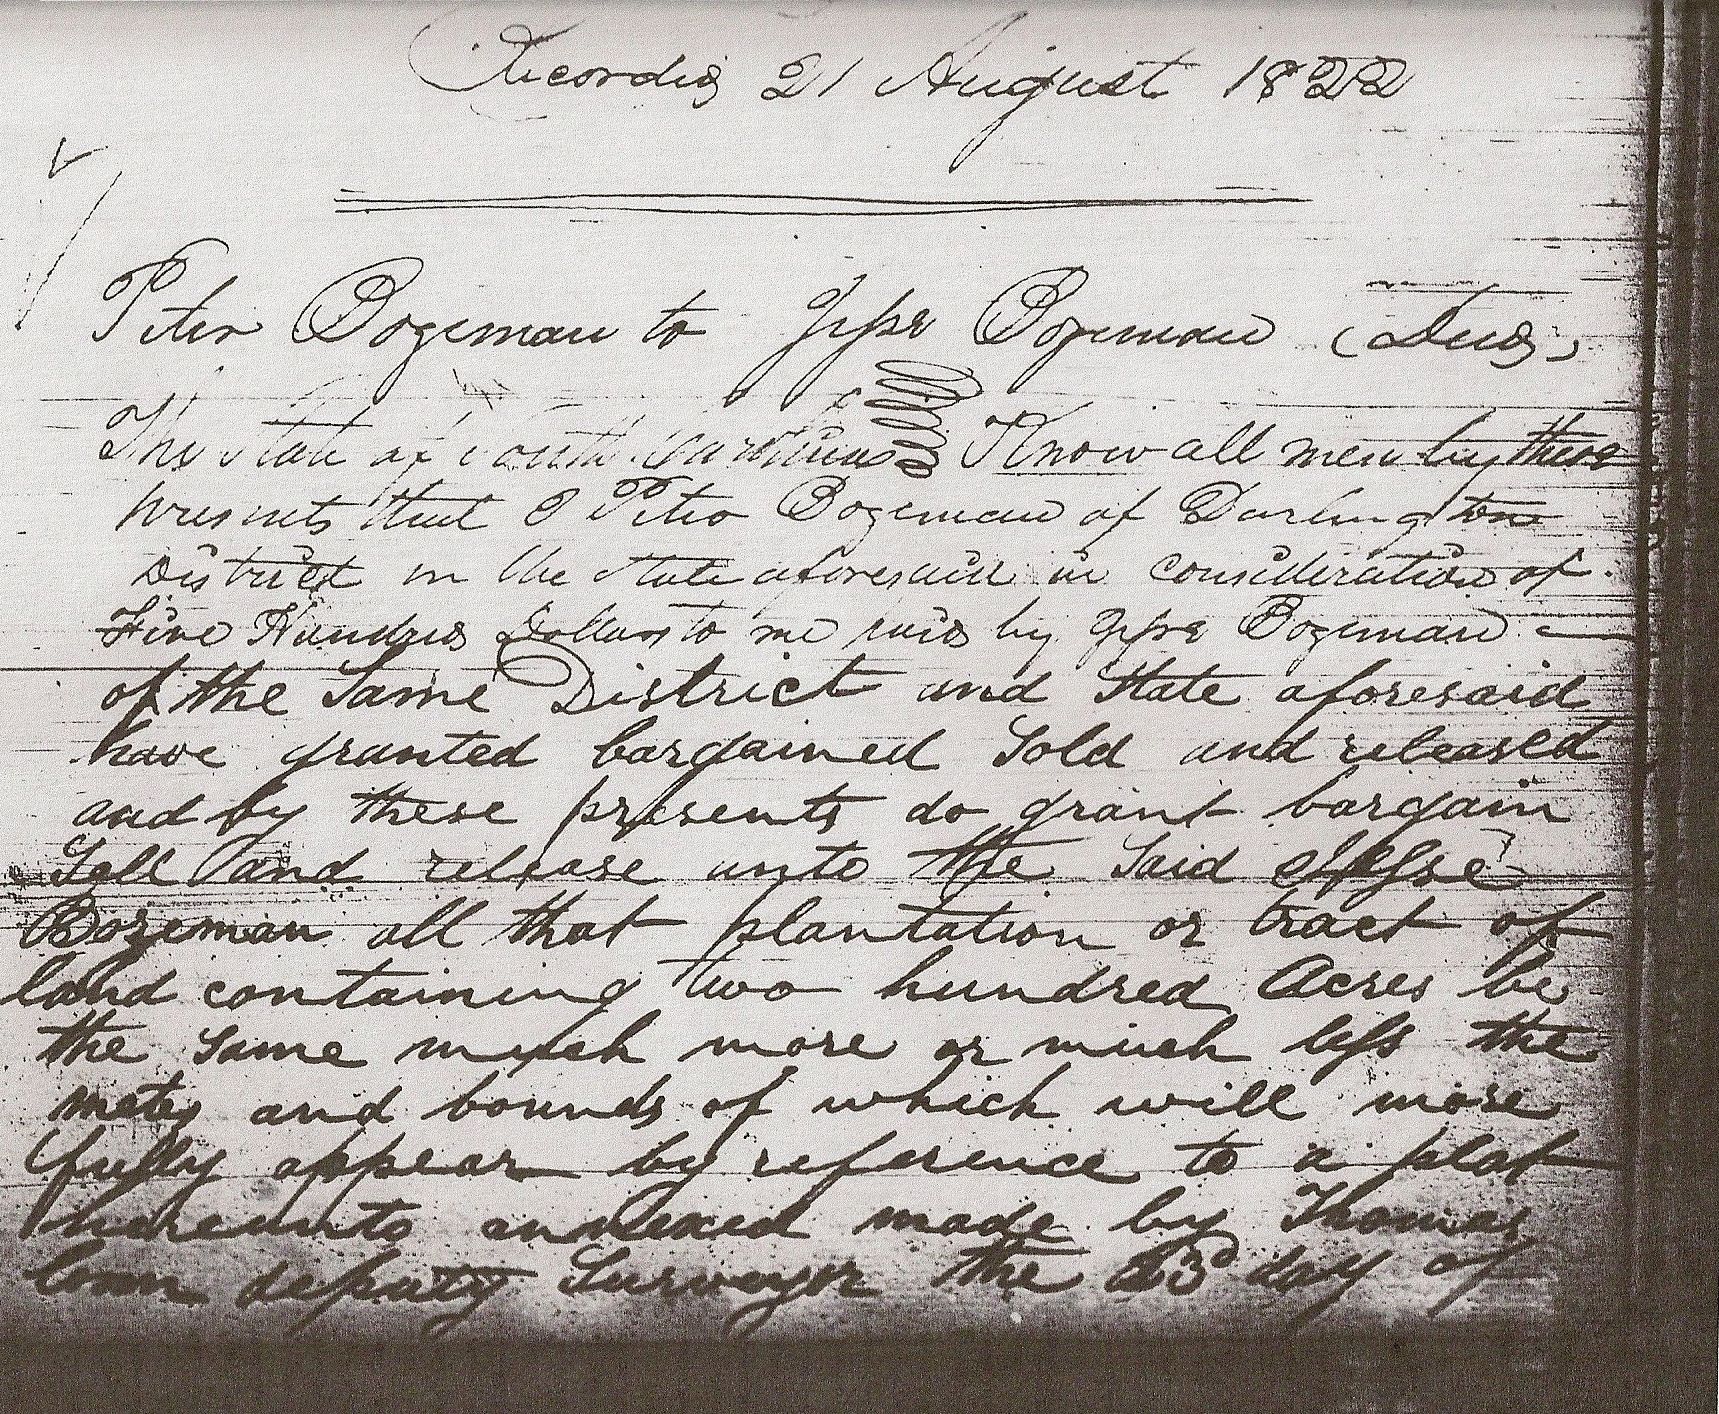 Recorded 21 August 1822
Peter Bozeman to Jesse Bozeman (Deed)
The State of South Carolina Know all men by these
presents that I Peter Bozeman of Darlington
District in the State aforesaid in consideration of
Five Hundred Dollars to me paid by Jesse Bozeman
of the Same District and State aforesaid
have granted bargained Sold and released
and by these presents do grant bargain
Sell and release unto the Said Jesse
Bozeman all that plantation or tract of
land containing two hundred Acres be
the Same much more or much less the
metes and bounds of which will more
fully appear by reference to a plat
hereunto annexed made by Thomas
deputy Surveyor the day of